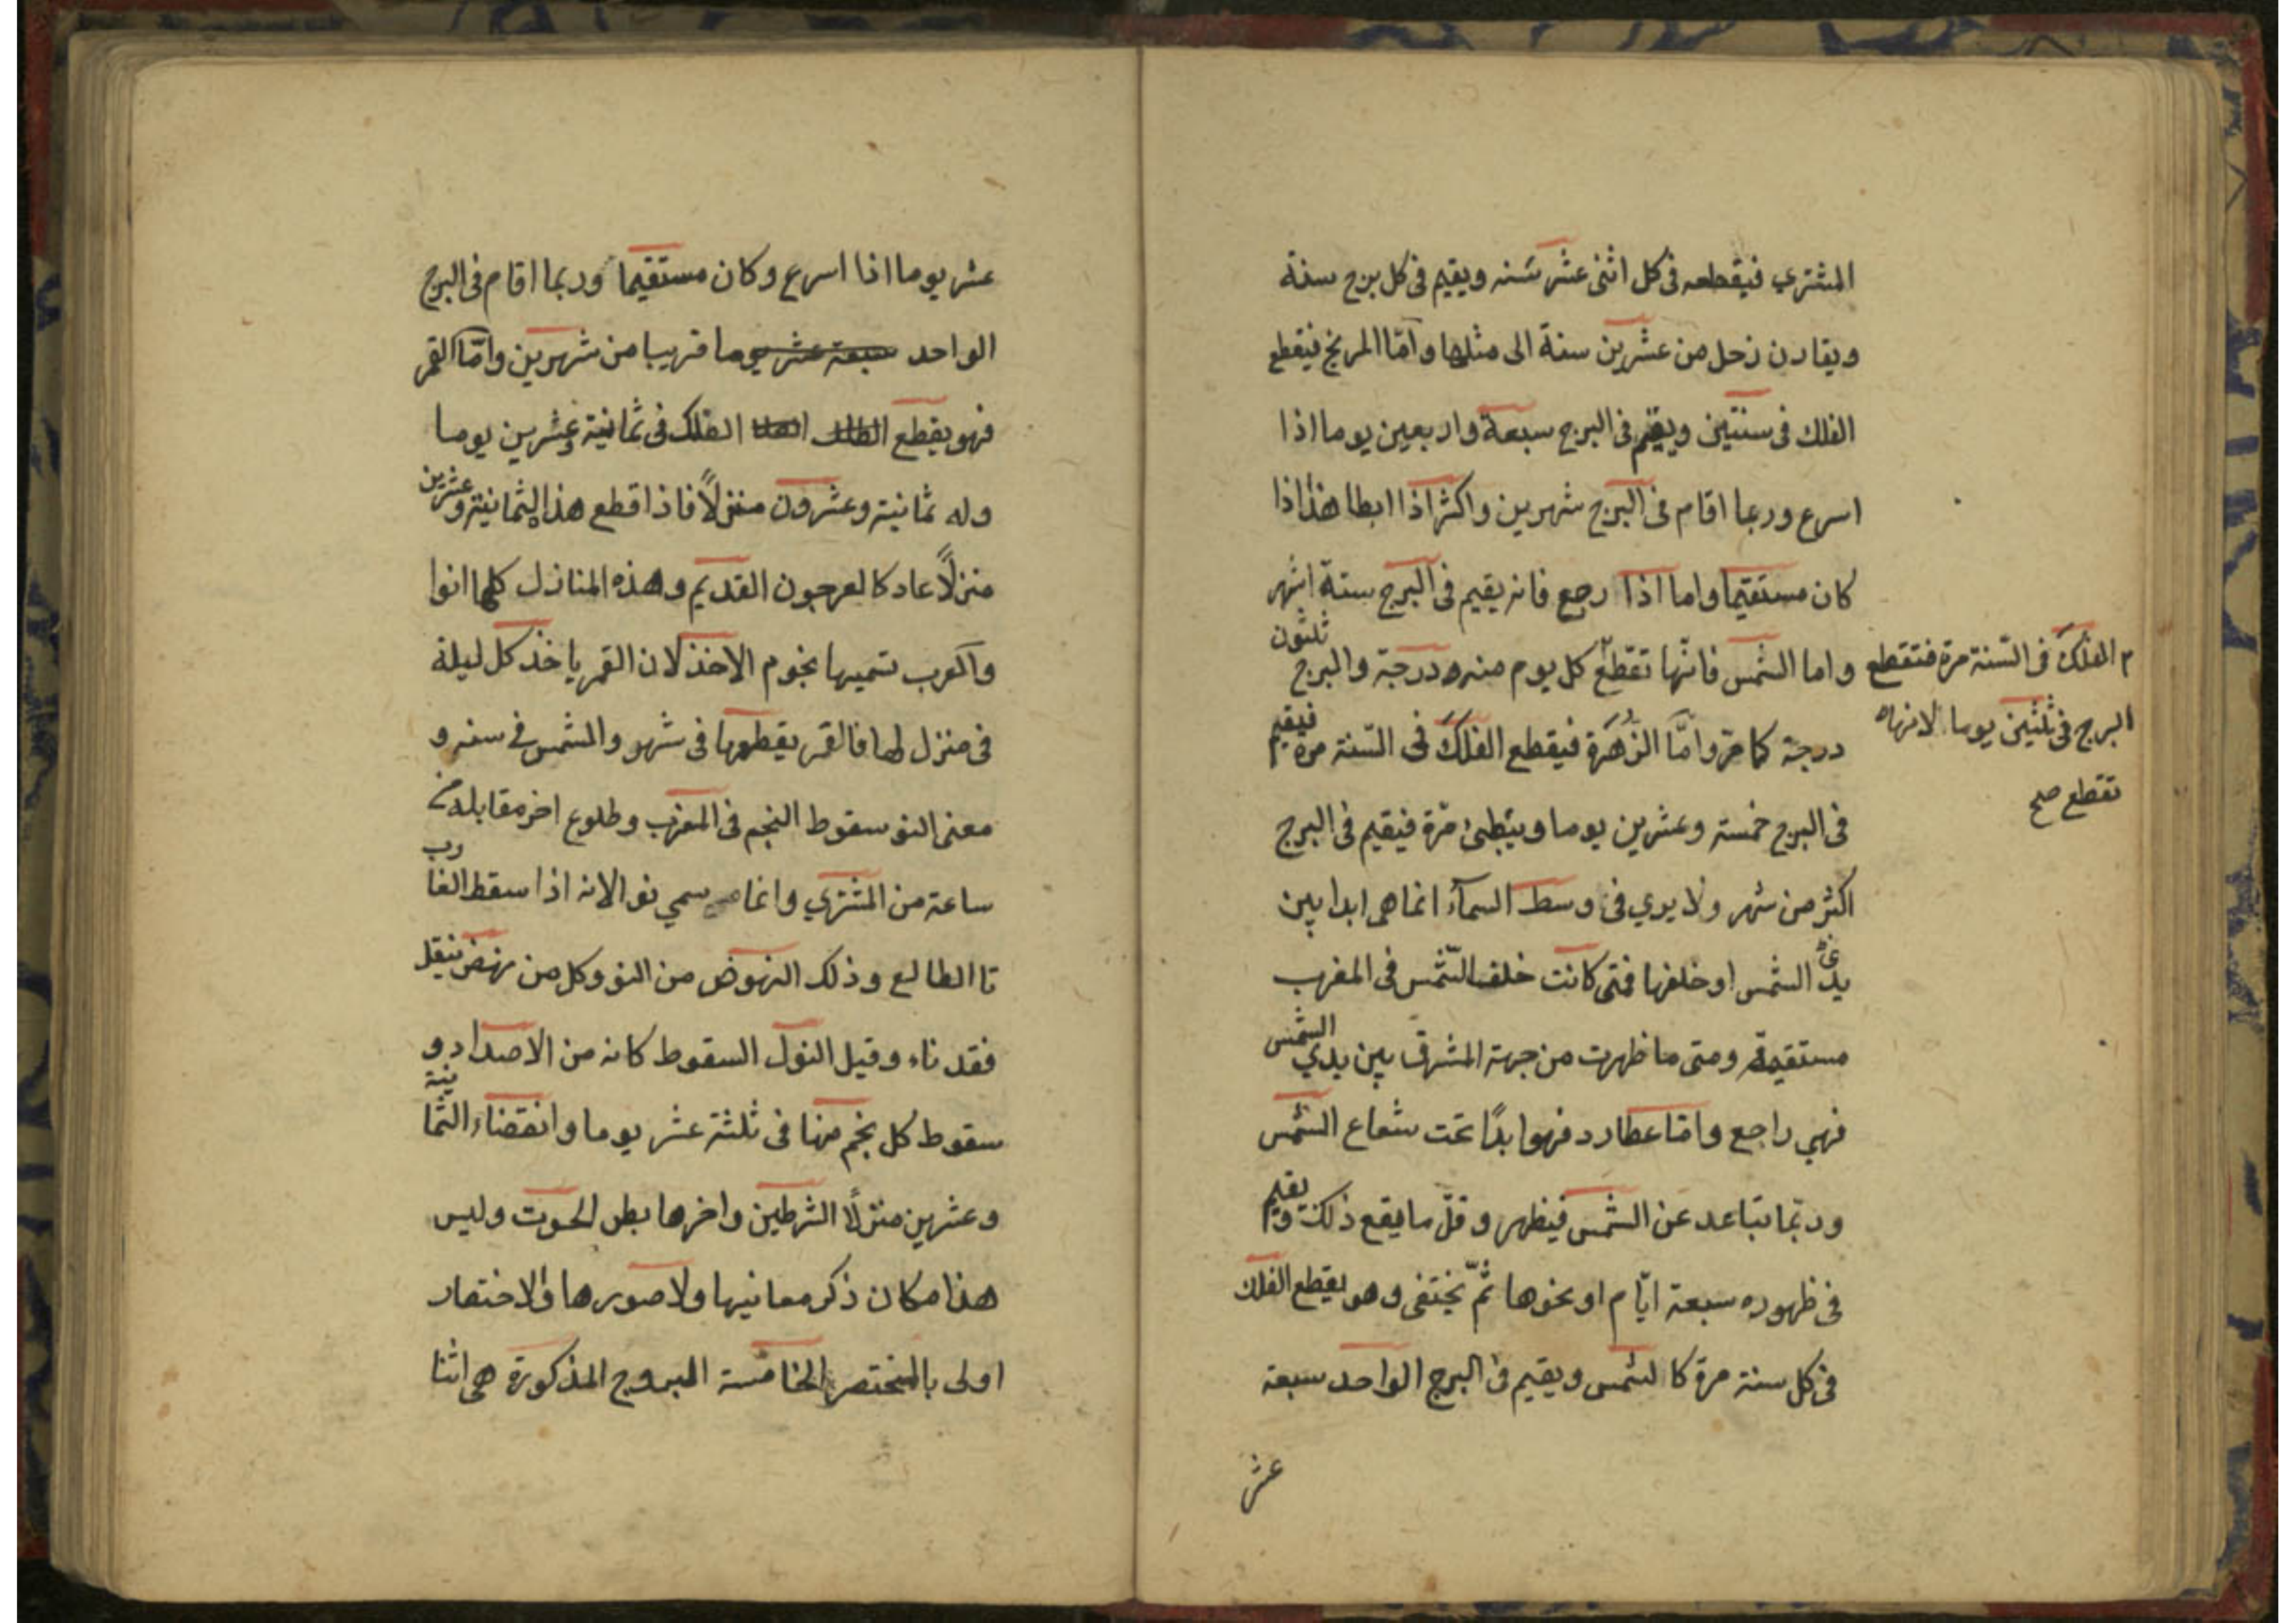 المشتري فيقطعه فى كل اثنى عشر سَنه ويقيم فى كل برج سنة
ويقارن زحل من عشرين سنة الى مثلها وامّا المريخ فيقطع
الفلك فى سنتين ويقيم فى البرج سبعة واربعين يوما اذا
اسرع وربما اقام فى البرج شهرين واكثر اذا ابطا هذا اذا
كان مستقيما واما اذا رجع فانه يقيم فى البرج ستة اشهر
واما الشمس فانّها تقطع كل يوم منه درجة والبرج ثلثون
الفلك فى السّنة مرة فتقطع
البرج فى ثلثين يوما لانها
تقطع صح
درجة كامر وامّا الزُهَرَة فيقطع الفلكَ فى السّنة مرة فيقيم
فى البرج خمسة وعشرين يوما ويبطئ مرّة فيقيم فى البرج
اكثر من شهر ولا يري فى وسط السمآء انما هى ابدا بين
يدى الشمس او خلفها فمتى كانت خلف الشّمس فى المغرب
مستقيمة ومتى ما ظهرت من جهة المشرق بين يدي الشمس
فهي راجع وامّا عطارد فهو ابدًا تحت شعاع الشمس
وربّما تباعد عن الشمس فيظهر وقلّ ما يقع ذلك ويقيم
فى ظهوره سبعة ايّام او نحوها ثمّ يختفى وهو يقطع الفلك
فى كل سنة مرة كالشمس ويقيم فى البرج الواحد سبعة
عشر
عشر يوما اذا اسرع وكان مستقيما وربما اقام فى البرج
الواحد سبعة عشر يوما قريبا من شهرين وامّا القمر
فهو يقطع الفلك فى ثمانية وعشرين يوما
وله ثمانية وعشرون منزلًا فاذا قطع هذا الثمانية وعشرين
منزلًا عاد كالعرجون القديم وهذه المنازل كلها انوا
والعرب تسميها نجوم الاخذ لان القمر ياخذ كل ليلة
فى منزل لها فالقمر يقطعها فى شهر والشمس فى سنه و
معنى النو سقوط النجم فى المغرب وطلوع اخر مقابله من
ساعة من المشتري وانما سمي نوا لانه اذا سقط الغارب
نا الطالع وذلك النهوض من النو وكل من نهض بثقل
فقد ناء وقيل النول السقوط كانه من الاضداد و
سقوط كل نجم منها فى ثلثة عشر يوما وانقضاء الثمانية
وعشرين منزلًا الشرطين واخرها بطن الحوت وليس
هذا مكان ذكر معانيها ولا صورها والاختصار
اولى بالمختصر الخامسة البروج المذكورة هى اثنا